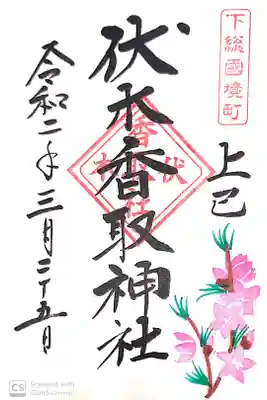 下総國境町
上巳
伏木香取神社
令和二年三月二十五日
CS Scanned with
CamScanner